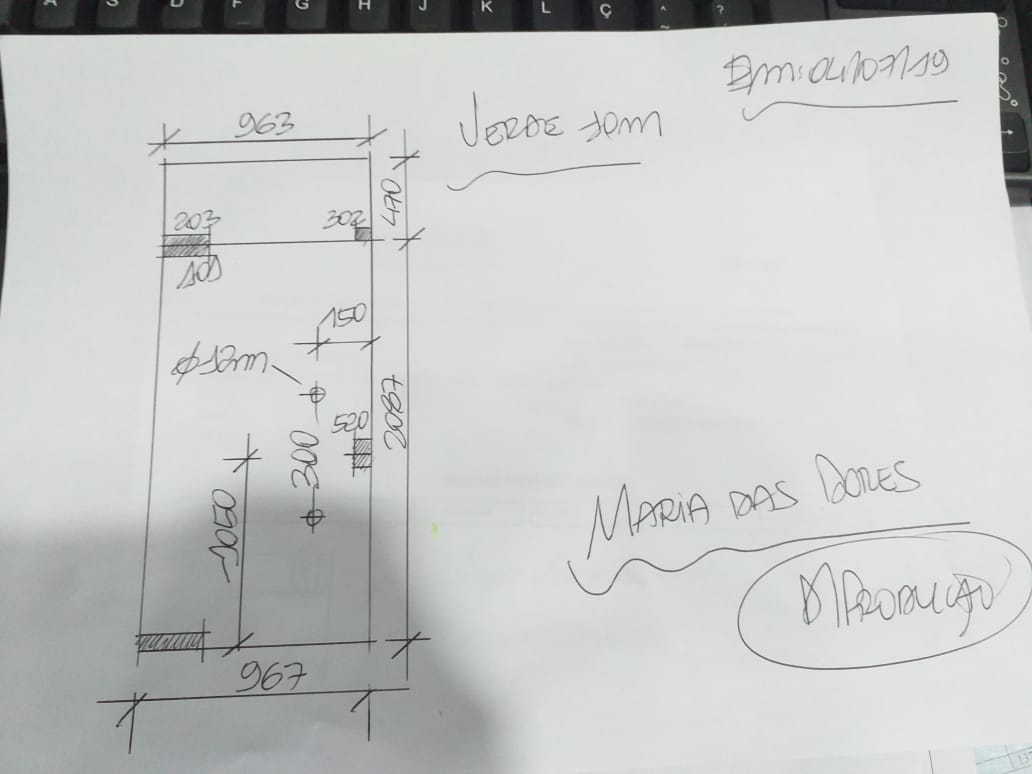 A S D F G H J K L Ç ^ ~ ?
Em: 04/07/19
963
VERDE 10m
470
203
302
101
150
Ø12m
2087
520
300
1050
MARIA DAS DORES
P/ PRODUÇÃO
967